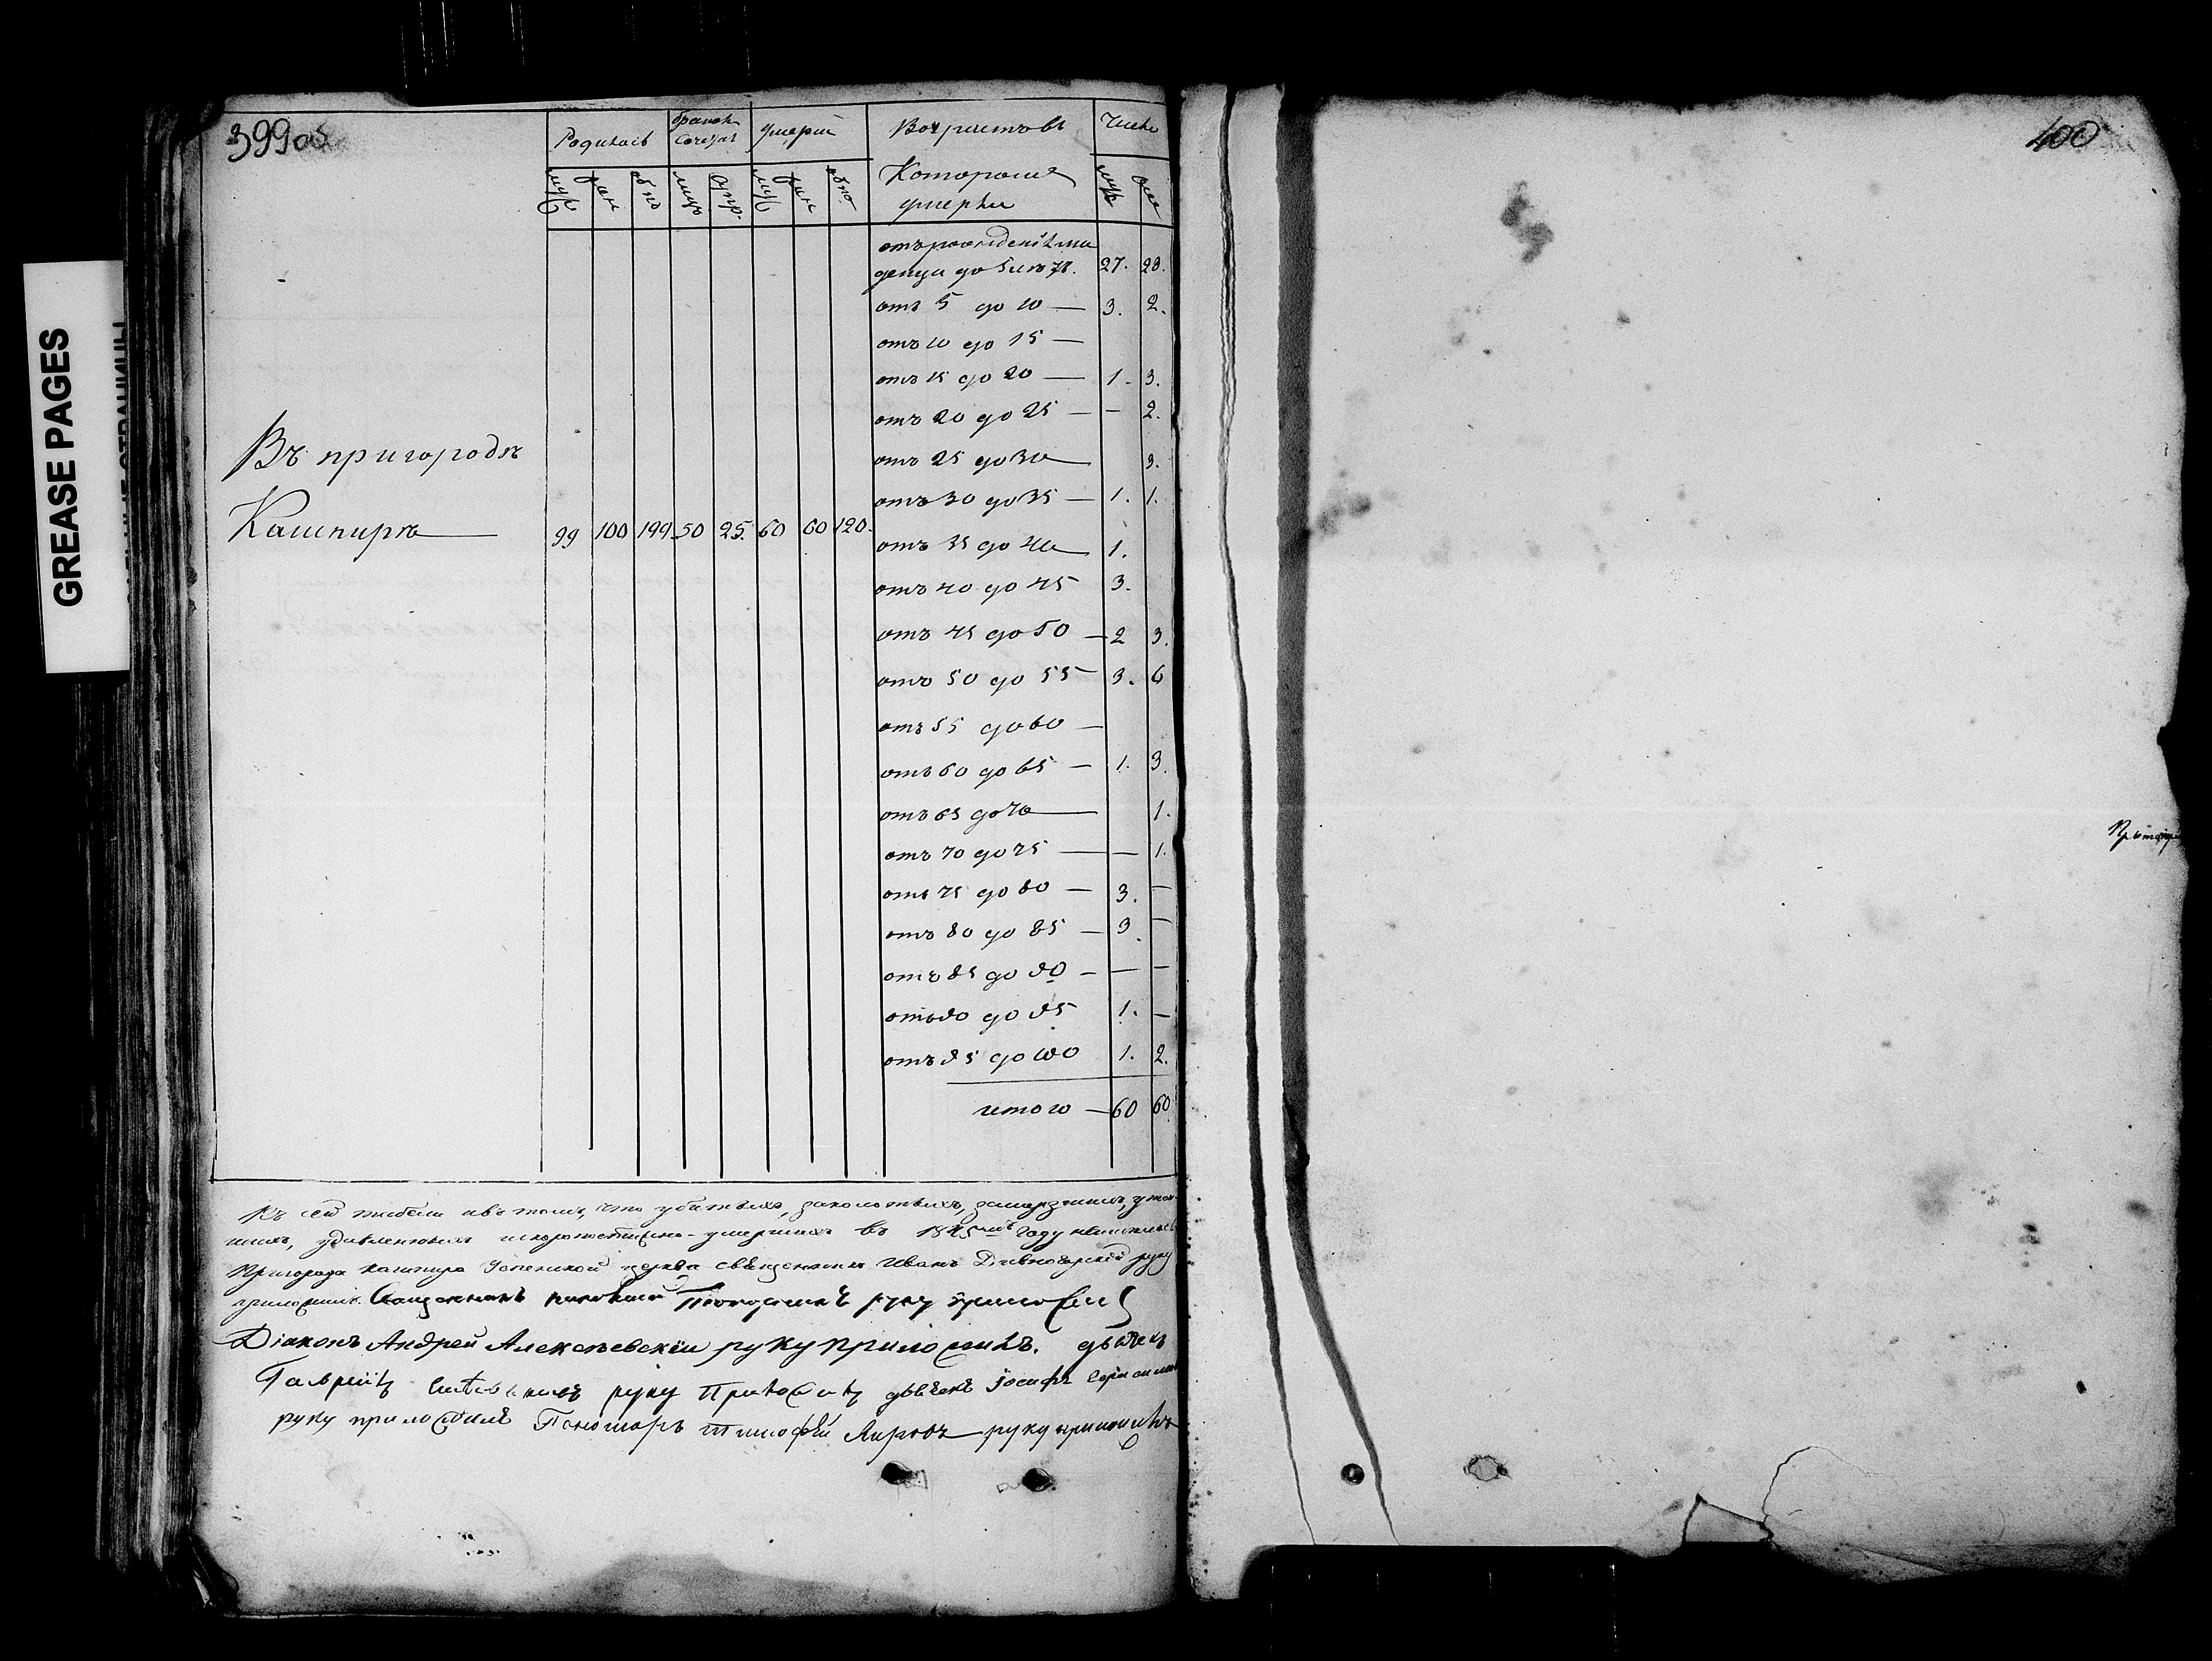 GREASE PAGES
399об
400
Родилось
бракомъ
Сочетан
Умерши
Возрастовъ
Число
муж
жен
обпо
лицъ
супр.
муж
жен
обпо
Которые
умерли
муж
жен
отъ рожденiя мла
денца до 5 лѣтъ. 27. 28.
отъ 5 до 10 — 3. 2.
отъ 10 до 15 —
отъ 15 до 20 — 1. 3.
отъ 20 до 25 — — 2.
Въ пригородѣ
отъ 25 до 30 — 3.
отъ 30 до 35 — 1. 1.
Кашпирѣ — 99 100 199. 50 25. 60 60 120.
отъ 35 до 40 — 1.
отъ 40 до 45 3.
отъ 45 до 50 — 2 3.
отъ 50 до 55 — 3. 6
отъ 55 до 60 —
отъ 60 до 65 — 1. 3.
отъ 65 до 70 — 1.
отъ 70 до 75 — — 1.
отъ 75 до 80 — 3. —
отъ 80 до 85 — 3. —
отъ 85 до 90 — — —
отъ 90 до 95 1. —
отъ 95 до 100 1. 2.
итого — 60 60
Къ сей табели и въ томъ, что убитыхъ, заколотыхъ, замерзшихъ, утоп
шихъ, удавленныхъ и скоропостижно-умершихъ въ 1845мъ году
Пригорода Кашпира Успенской церкви священникъ Иванъ Дивногорскiй руку
приложилъ. Священникъ руку приложилъ
Дiаконъ Андрей Алексѣевскiй руку приложилъ. дьячекъ
руку приложилъ дьячекъ Iосифъ
руку приложилъ Пономарь Тимофей руку приложилъ